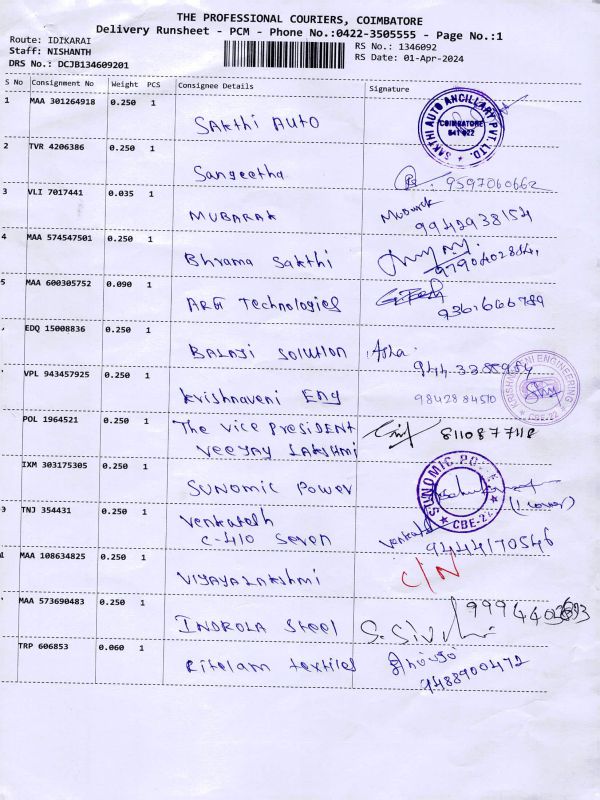 THE PROFESSIONAL COURIERS, COIMBATORE
Delivery Runsheet - PCM - Phone No.:0422-3505555 - Page No.:1
Route: IDIKARAI
Staff: NISHANTH
DRS No.: DCJB134609201
RS No.: 1346092
RS Date: 01-Apr-2024
S No Consignment No Weight PCS Consignee Details Signature
1 MAA 301264918 0.250 1 SAKTHI AUTO
SAKTHI AUTO ANCILLARY PVT. LTD. COIMBATORE 641 022
2 TVR 4206386 0.250 1 Sangeetha
9597060662
3 VLI 7017441 0.035 1 MUBARAK
9942938154
4 MAA 574547501 0.250 1 Bhrama Sakthi
5 MAA 600305752 0.090 1 ARG Technologies
EDQ 15008836 0.250 1 BALAJI SOLUTION Asha
VPL 943457925 0.250 1 Krishnaveni Eng 9842884510
KRISHNAVENI ENGINEERING CBE-22
POL 1964521 0.250 1 The vice PRESIDENT
VEEJAY LAKSHMI
IXM 303175305 0.250 1 SUNOMIC POWER
SUNOMIC CBE-22
(1 cover)
TNJ 354431 0.250 1 Venkatesh
C-410 Seven
9444170546
MAA 108634825 0.250 1 VIJAYALAKSHMI C/N
MAA 573690483 0.250 1 INDROLA Steel
TRP 606853 0.060 1 Ritelam textiles